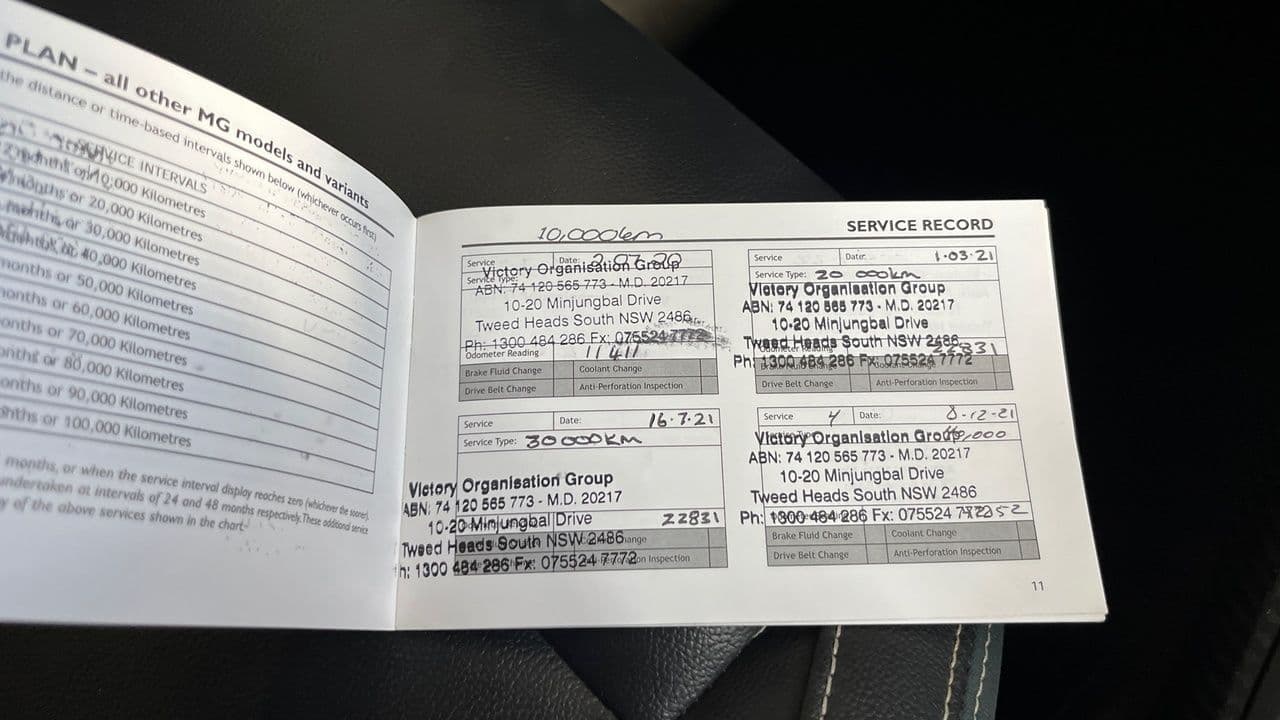 PLAN – all other MG models and variants
the distance or time-based intervals shown below (whichever occurs first)
SERVICE INTERVALS
months or 10,000 Kilometres
months or 20,000 Kilometres
months or 30,000 Kilometres
months or 40,000 Kilometres
months or 50,000 Kilometres
months or 60,000 Kilometres
months or 70,000 Kilometres
months or 80,000 Kilometres
months or 90,000 Kilometres
months or 100,000 Kilometres
months, or when the service interval display reaches zero (whichever the sooner).
undertaken at intervals of 24 and 48 months respectively. These additional service
of the above services shown in the chart
SERVICE RECORD
10,000km
Service Date:
Service Type:
Victory Organisation Group
ABN: 74 120 565 773 - M.D. 20217
10-20 Minjungbal Drive
Tweed Heads South NSW 2486
Ph: 1300 484 286 Fx: 075524 7772
Odometer Reading 11411
Brake Fluid Change Coolant Change
Drive Belt Change Anti-Perforation Inspection
Service Date: 1·03·21
Service Type: 20 000km
Victory Organisation Group
ABN: 74 120 565 773 - M.D. 20217
10-20 Minjungbal Drive
Tweed Heads South NSW 2486
Odometer Reading
Ph: 1300 484 286 Fx: 075524 7772
Drive Belt Change Anti-Perforation Inspection
Service Date: 16·7·21
Service Type: 30000KM
Victory Organisation Group
ABN: 74 120 565 773 - M.D. 20217
10-20 Minjungbal Drive 22831
Tweed Heads South NSW 2486
Ph: 1300 484 286 Fx: 075524 7772
Service 4 Date: 8-12-21
Service Type:
Victory Organisation Group
ABN: 74 120 565 773 - M.D. 20217
10-20 Minjungbal Drive
Tweed Heads South NSW 2486
Ph: 1300 484 286 Fx: 075524
Brake Fluid Change Coolant Change
Drive Belt Change Anti-Perforation Inspection
11